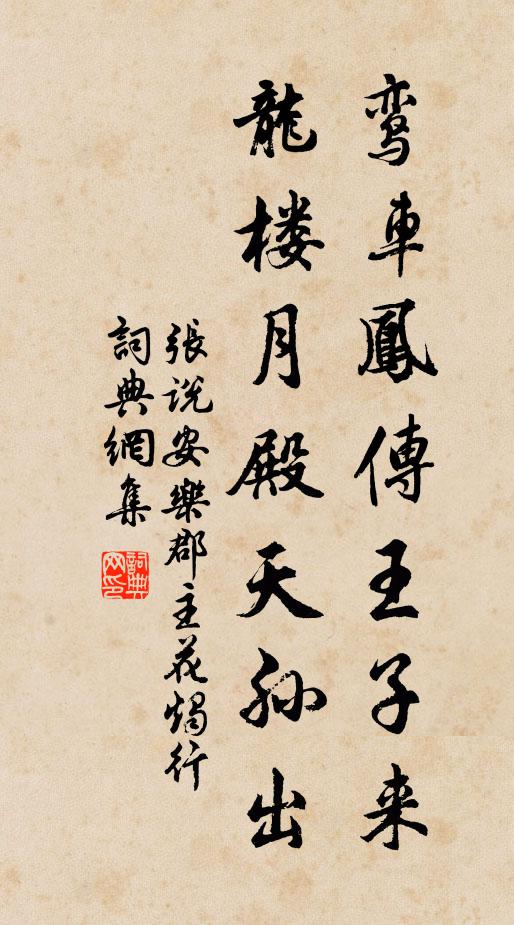 鸾車鳳傳王子来
龍楼月殿天孫出
張説安樂郡主花燭行
詞典網集
詞典网印